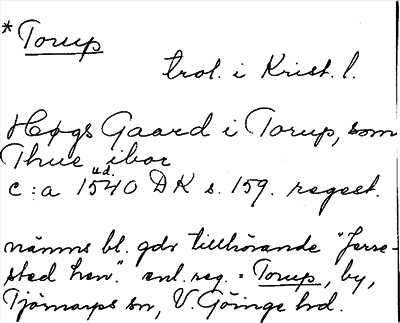 *Torup
trol. i Krist. l.
Høgs Gaard i Torup, som
Thue ibor
u.d.
c:a 1540 DK s. 159. regest.
nämns bl. gdr tillhörande "Jerre-
stad hrn". enl. reg. = Torup, by,
Tjörnarps sn, V. Göinge hd.